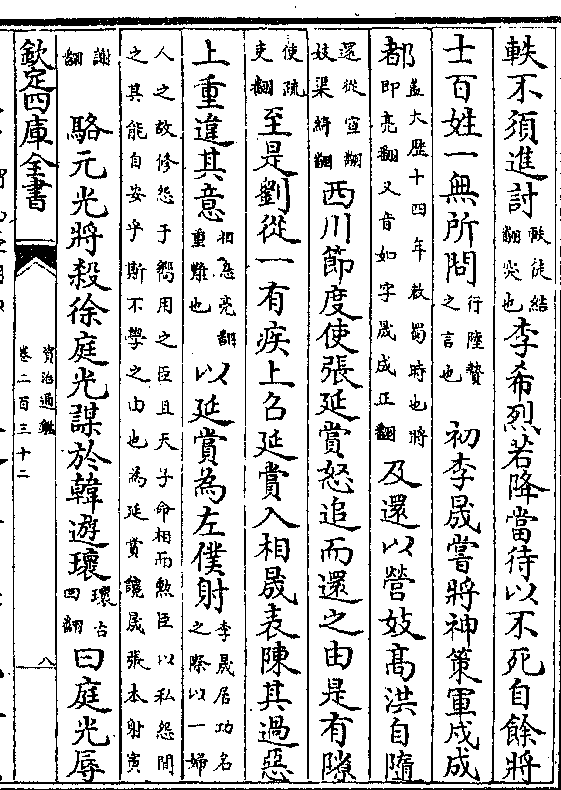 軼不須進討軼徒結翻突也李希烈若降當待以不死自餘將
士百姓一無所問行陸贄之言也 初李晟嘗將神策軍戍成
都蓋大歷十四年救蜀時也將即亮翻又音如字晟成正翻及還以營妓髙洪自隨
還從宣翻妓渠綺翻西川節度使張延賞怒追而還之由是有隙
使疏吏翻至是劉從一有疾上召延賞入相晟表陳其過惡
上重違其意相息亮翻重難也以延賞為左僕射李晟居功名之際以一婦
人之故修怨于嚮用之臣且天子命相而勲臣以私怨間之其能自安乎斯不學之由也為延賞䜛晟張本射寅
謝翻 駱元光將殺徐庭光謀於韓遊瓌瓌古回翻曰庭光辱
欽定四庫全書
資治通鑑
卷二百三十二
八